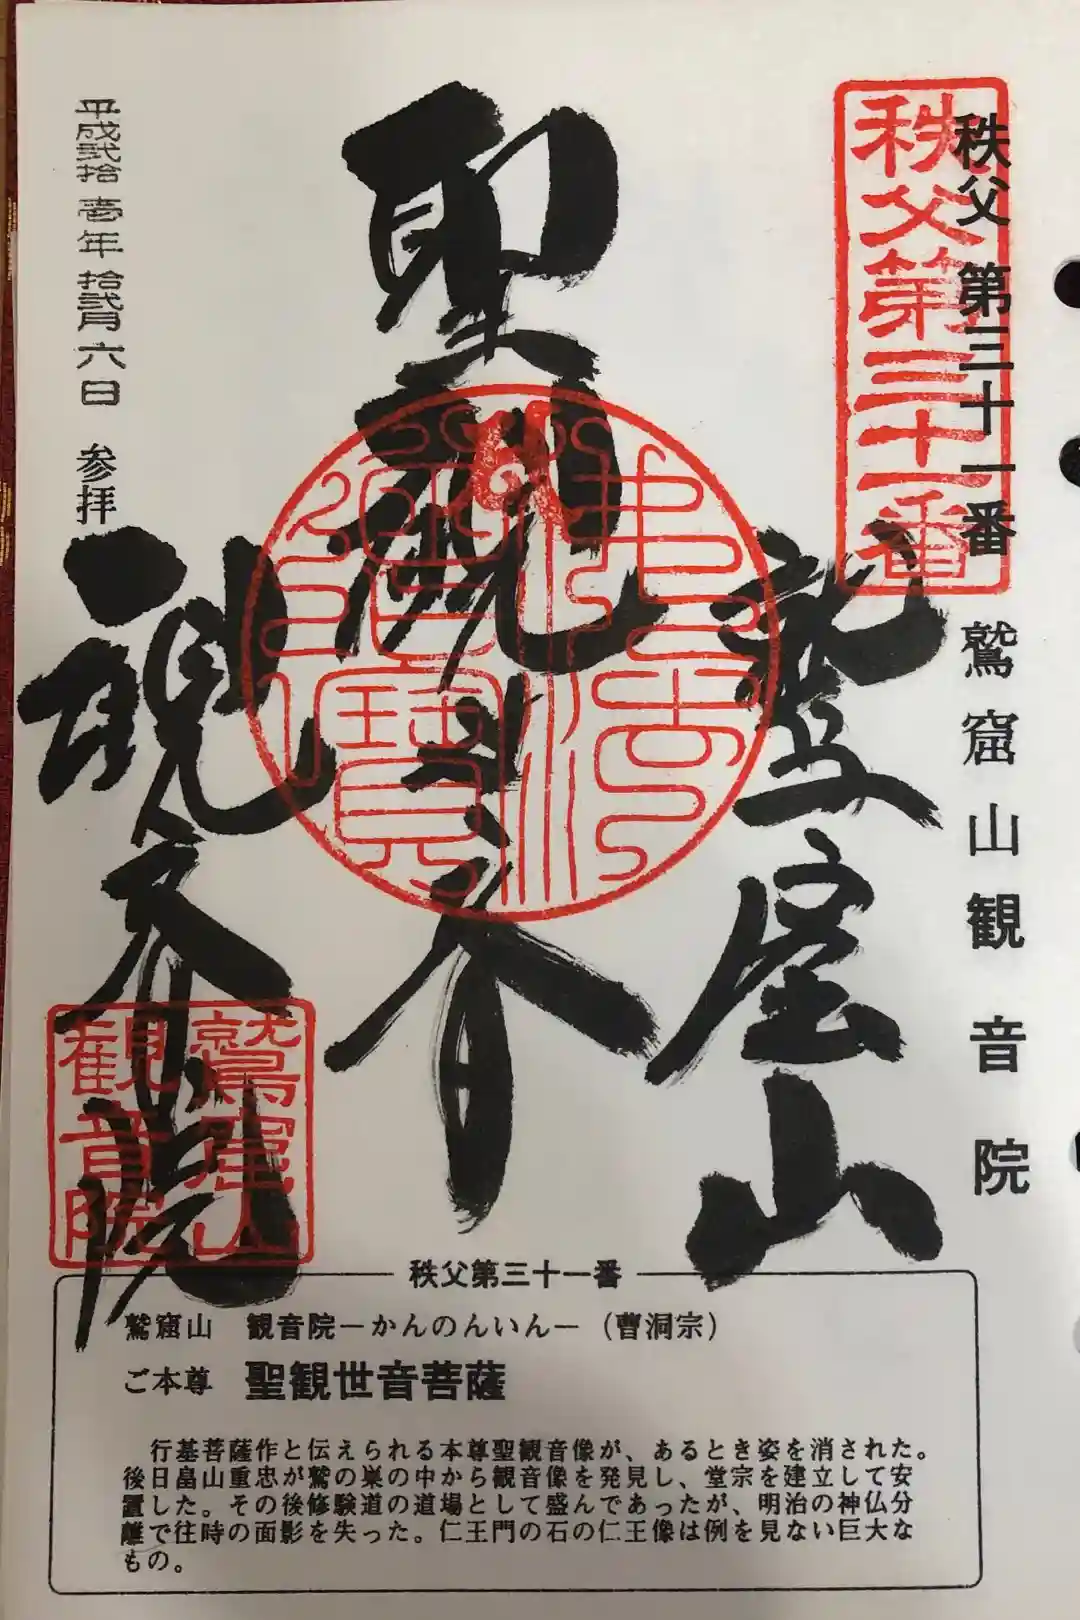 秩父第三十一番
秩父 第三十一番 鷲窟山観音院
鷲窟山
聖観世音
観音院
平成弐拾壱年拾弐月六日 参拝
佛法僧寶
鷲窟山
観音院
秩父第三十一番
鷲窟山 観音院－かんのんいん－（曹洞宗）
ご本尊 聖観世音菩薩
行基菩薩作と伝えられる本尊聖観音像が、あるとき姿を消された。
後日畠山重忠が鷲の巣の中から観音像を発見し、堂宗を建立して安
置した。その後修験道の道場として盛んであったが、明治の神仏分
離で往時の面影を失った。仁王門の石の仁王像は例を見ない巨大な
もの。